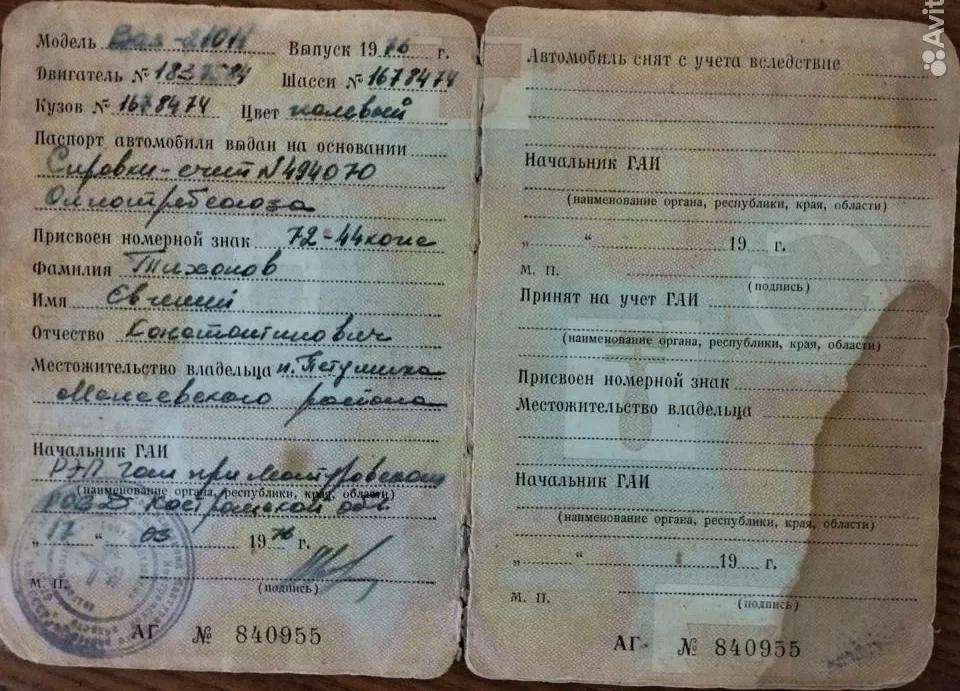 Модель Ваз-21011 Выпуск 1976 г.
Двигатель № 1837584 Шасси № 1678474
Кузов № 1678474 Цвет
Паспорт автомобиля выдан на основании
Справки-счет N 494070
Присвоен номерной знак 72-44
Фамилия Тихонов
Имя Евгений
Отчество Константинович
Местожительство владельца п.
района
Начальник ГАИ
РЭП ГАИ при
(наименование органа, республики, края, области)
РОВД Костромской обл.
„17“ 03 1976 г.
М. П.
(подпись)
АГ № 840955
Автомобиль снят с учета вследствие
Начальник ГАИ
(наименование органа, республики, края, области)
„ “ 19 г.
М. П.
(подпись)
Принят на учет ГАИ
(наименование органа, республики, края, области)
Присвоен номерной знак
Местожительство владельца
Начальник ГАИ
(наименование органа, республики, края, области)
„ “ 19 г.
М. П.
(подпись)
АГ № 840955
Avit